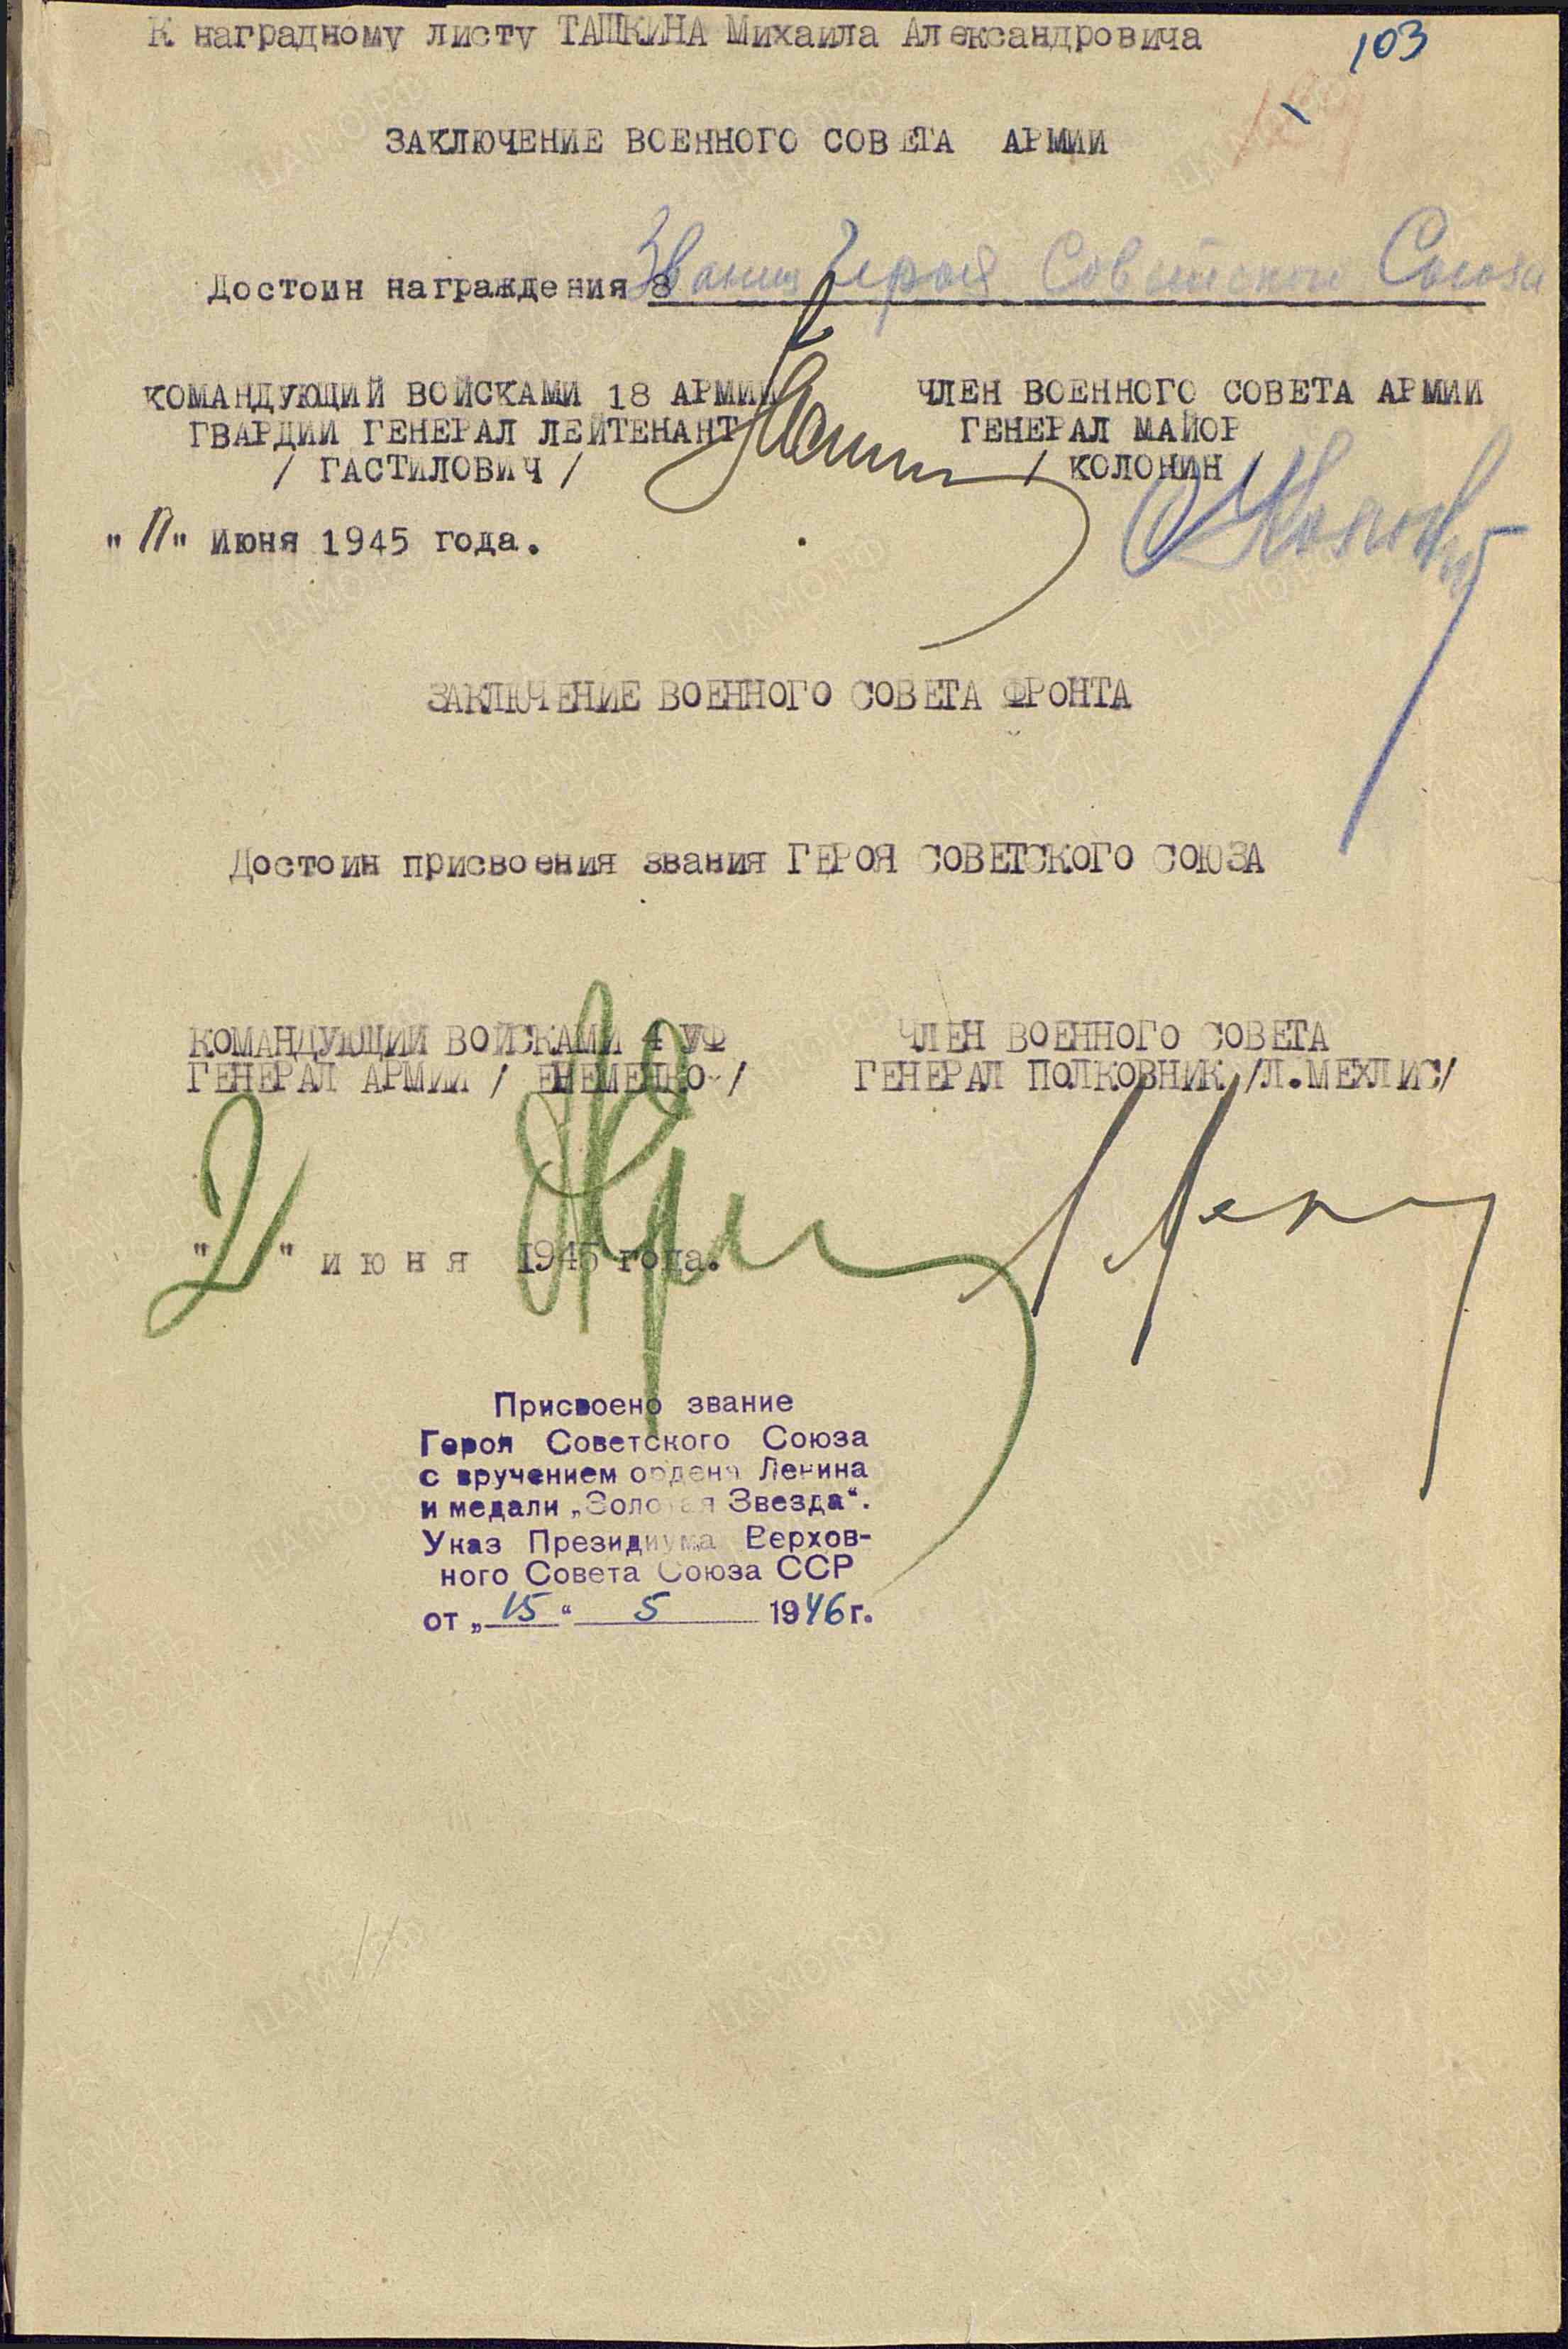 К наградному листу ТАШКИНА Михаила Александровича
103
ЗАКЛЮЧЕНИЕ ВОЕННОГО СОВЕТА АРМИИ
Достоин награждения Звания Героя Советского Союза
КОМАНДУЮЩИЙ ВОЙСКАМИ 18 АРМИИ
ГВАРДИИ ГЕНЕРАЛ ЛЕЙТЕНАНТ
/ ГАСТИЛОВИЧ /
ЧЛЕН ВОЕННОГО СОВЕТА АРМИИ
ГЕНЕРАЛ МАЙОР
/ КОЛОНИН /
"11" Июня 1945 года.
ЗАКЛЮЧЕНИЕ ВОЕННОГО СОВЕТА ФРОНТА
Достоин присвоения звания ГЕРОЯ СОВЕТСКОГО СОЮЗА
КОМАНДУЮЩИЙ ВОЙСКАМИ 4 УФ
ГЕНЕРАЛ АРМИИ / ЕРЕМЕНКО /
ЧЛЕН ВОЕННОГО СОВЕТА
ГЕНЕРАЛ ПОЛКОВНИК /Л.МЕХЛИС/
"21" июня 1945 года.
Присвоено звание
Героя Советского Союза
с вручением ордена Ленина
и медали „Золотая Звезда“.
Указ Президиума Верхов-
ного Совета Союза ССР
от „15“ 5 1946 г.
ЦАМО.РФ
ПАМЯТЬ
НАРОДА